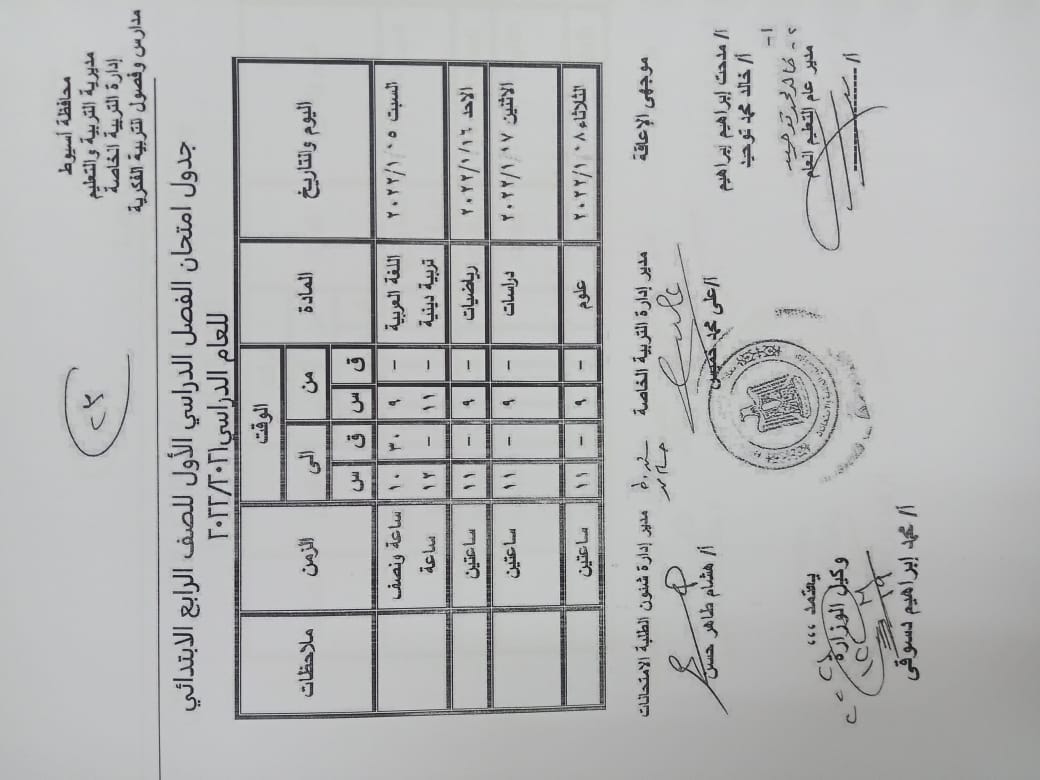 محافظة أسيوط
مديرية التربية والتعليم
إدارة التربية الخاصة
مدارس وفصول للتربية الفكرية
جدول امتحان الفصل الدراسي الأول للصف الرابع الابتدائي
للعام الدراسي ٢٠٢٢/٢٠٢١
اليوم والتاريخ المادة الوقت الزمن ملاحظات
من الى
ق س ق س
السبت ٢٠٢٢/١/٠٥ اللغة العربية - ٩ ٣٠ ١٠ ساعة ونصف
تربية دينية - ١١ - ١٢ ساعة
الاحد ٢٠٢٢/١/١٦ رياضيات - ٩ - ١١ ساعتين
الاثنين ٢٠٢٢/١/١٧ دراسات - ٩ - ١١ ساعتين
الثلاثاء ٢٠٢٢/١/٠٨ علوم - ٩ - ١١ ساعتين
موجهى الإعاقة مدير إدارة التربية الخاصة مدير إدارة شئون الطلبة الامتحانات
أ/ مدحت إبراهيم إبراهيم أ/على محمد خميس أ/ هشام طاهر حسن
أ/ خالد محمد توحيد
مدير عام التعليم العام
أ/
يعتمد ،،،
وكيل الوزارة
أ/ محمد إبراهيم دسوقى